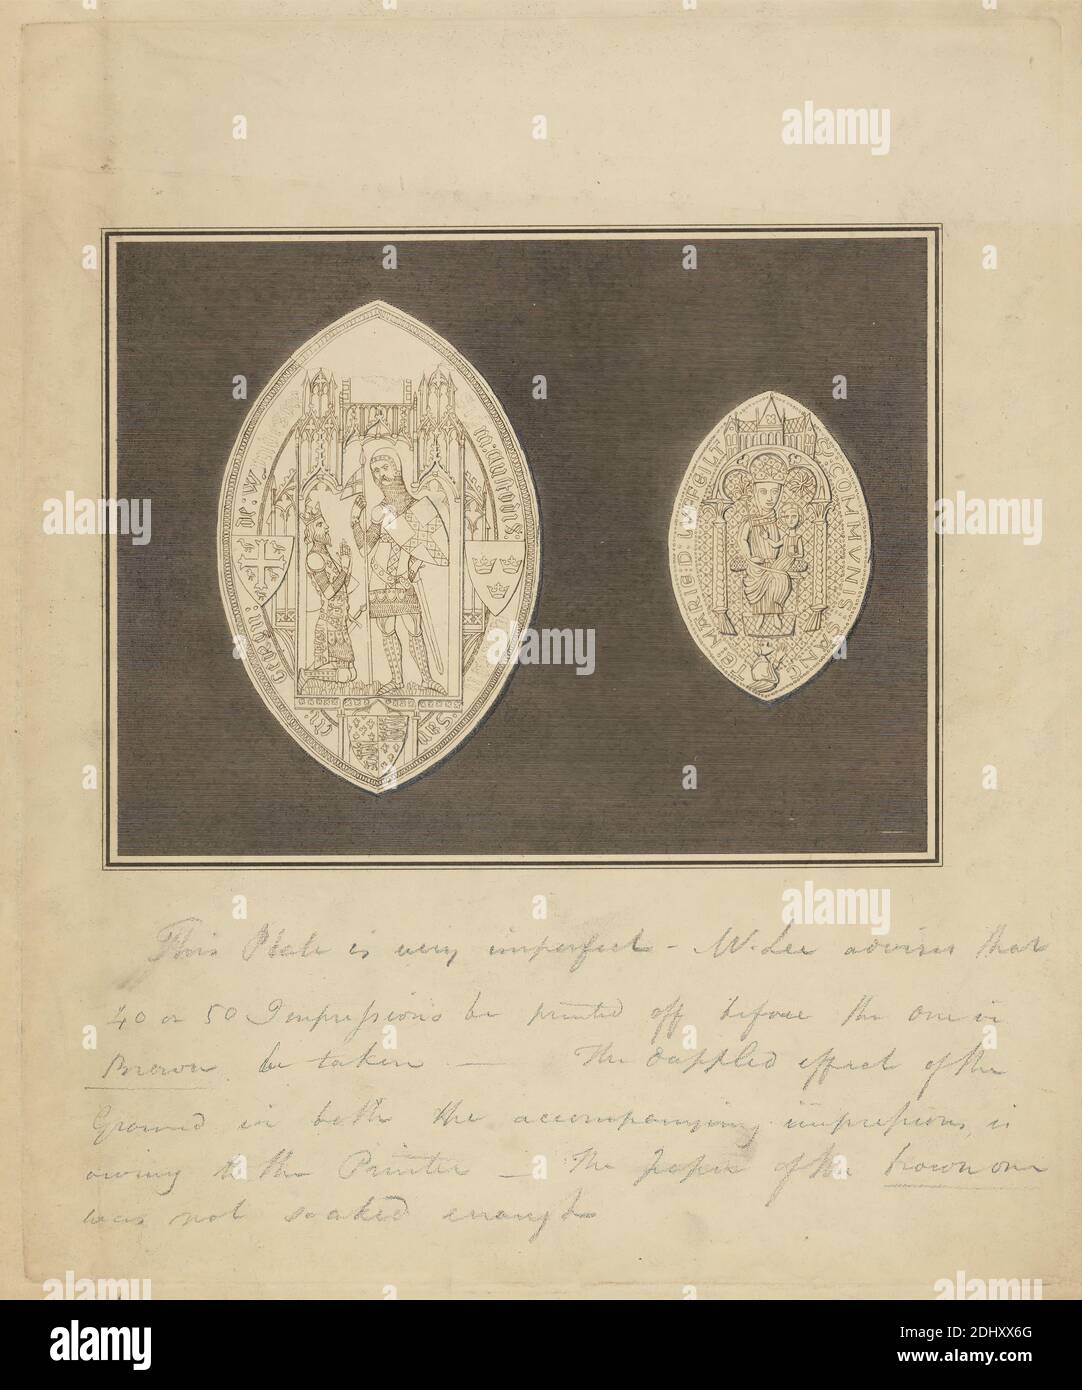 alamy
de : w
mauborn :
georgii :
san
cti :
S' COMMVNIS : SANC
TE : MARIE : D : LVFFEILT
This Plate is very imperfect - Mr. Lee advises that
40 or 50 Impressions be printed off before the one in
Brown be taken — The dappled effect of the
Ground in both the accompanying impressions, is
owing to the Printer — The paper of the brown one
was not soaked enough
alamy
Image ID: 2DHXX6G
www.alamy.com